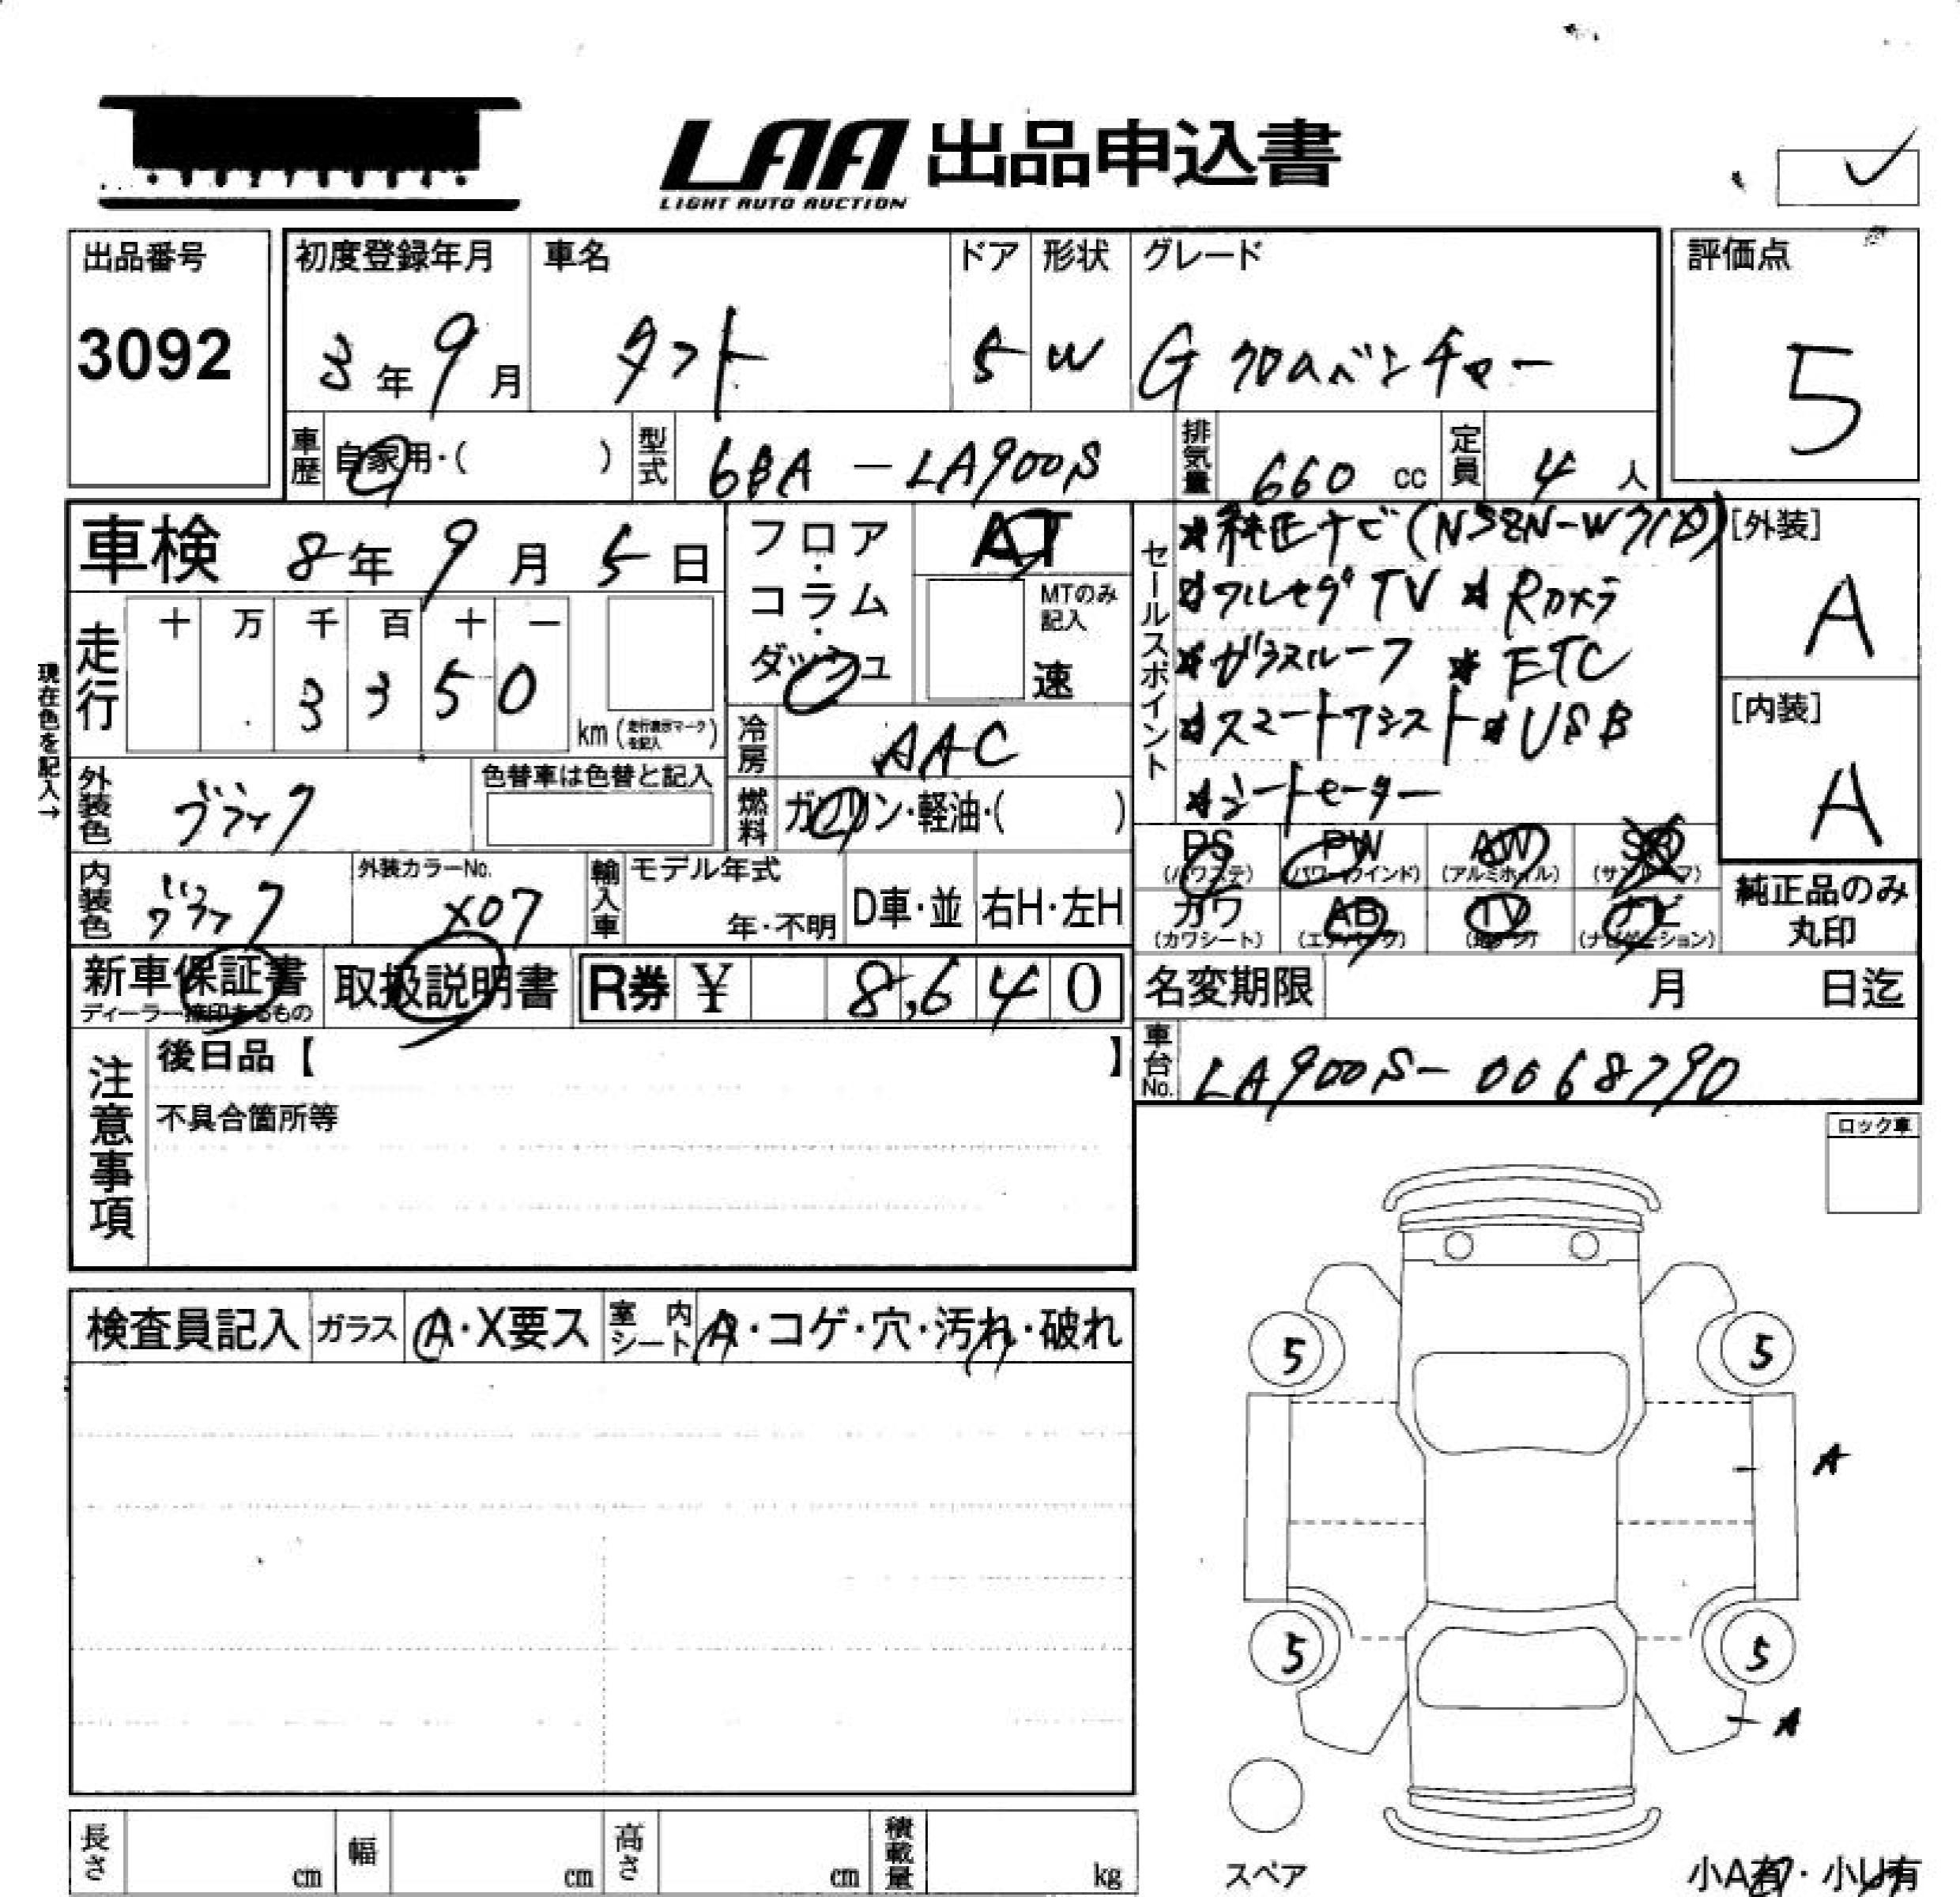 LAA 出品申込書
LIGHT AUTO AUCTION
出品番号
3092
初度登録年月
3年9月
車名
タフト
ドア
5
形状
W
グレード
G クロムベンチャー
評価点
5
車歴 自家用・( )
型式 6BA-LA900S
排気量 660 cc
定員 4人
車検 8年9月5日
フロア・コラム・ダッシュ
AT
MTのみ記入
速
セールスポイント
★純正ナビ(NSZN-W
★フルセグTV ★Rカメラ
★ガラスルーフ ★ETC
★スマートアシスト★USB
★シートヒーター
[外装]
A
[内装]
A
現在色を記入→
走行
十 万 千 百 十 一
3 3 5 0
km(走行表示マークを記入)
冷房 AAC
外装色 ブラック
色替車は色替と記入
燃料 ガソリン・軽油・( )
PS (パワステ)
PW (パワーウインド)
AW (アルミホイル)
SR (サンルーフ)
カワ (カワシート)
AB (エアバック)
TV
ナビ (ナビゲーション)
純正品のみ丸印
内装色 ブラック
外装カラーNo.
X07
輸入車
モデル年式
年・不明
D車・並
右H・左H
新車保証書
ディーラー捺印あるもの
取扱説明書
R券 ¥ 8,640
名変期限 月 日迄
車台No. LA900S-0068790
注意事項
後日品【 】
不具合箇所等
ロック車
検査員記入
ガラス A・X要ス
室内シート A・コゲ・穴・汚れ・破れ
5
5
A
5
5
A
スペア
長さ cm
幅 cm
高さ cm
積載量 kg
小A有・小U有